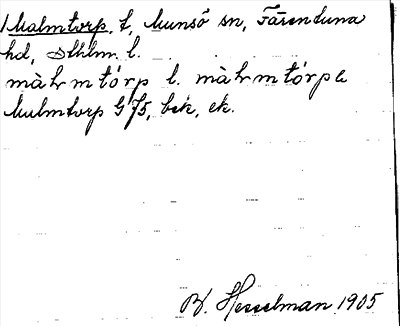 Malmtorp, t, Munsö sn, Färentuna
hd, Sthlm l.
màlrmtórp l. màlrmtórpa
Malmtorp G 75, bek, ek.
B. Hesselman 1905